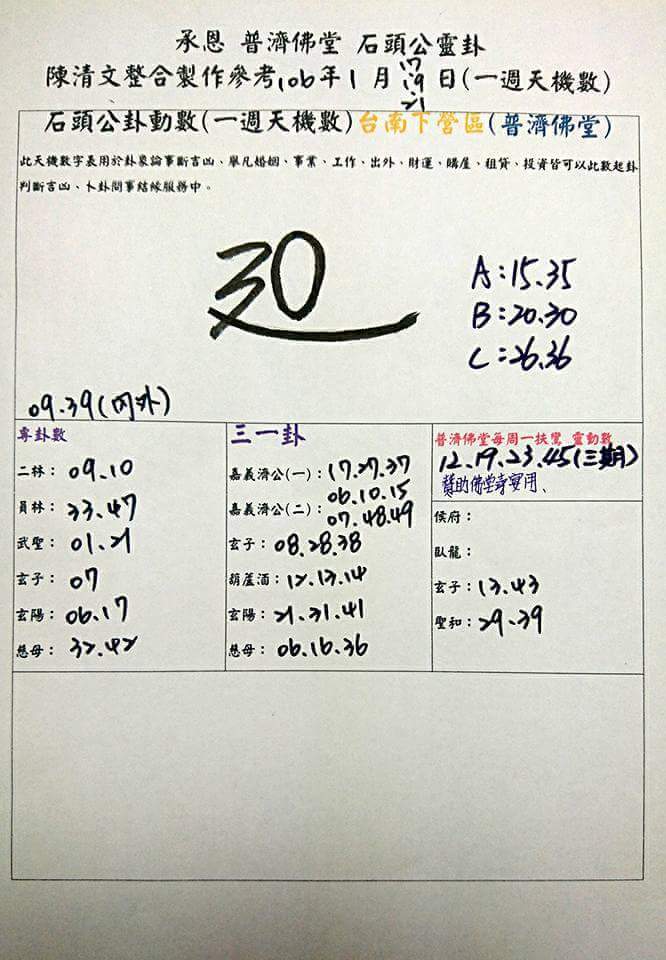 承恩 普濟佛堂 石頭公靈卦
陳清文整合製作參考106年1月17.19.21日(一週天機數)
石頭公卦動數(一週天機數)台南下營區(普濟佛堂)
此天機數字表用於卦象論事斷吉凶、舉凡婚姻、事業、工作、出外、財運、購屋、租貸、投資皆可以此數起卦
判斷吉凶、卜卦問事結緣服務中。
30
A:15.35
B:20.30
C:26.36
09.39(內外)
專卦數
二林：09.10
員林：33.47
武聖：01.21
玄子：07
玄陽：06.17
慈母：32.42
三一卦
嘉義濟公(一)：17.27.37
06.10.15
嘉義濟公(二)：07.48.49
玄子：08.28.38
葫蘆酒：12.13.14
玄陽：21.31.41
慈母：06.16.36
普濟佛堂每周一扶鸞 靈動數
12.19.23.45(三期)
贊助佛堂專用、
侯府：
臥龍：
玄子：13.43
聖和：29.39